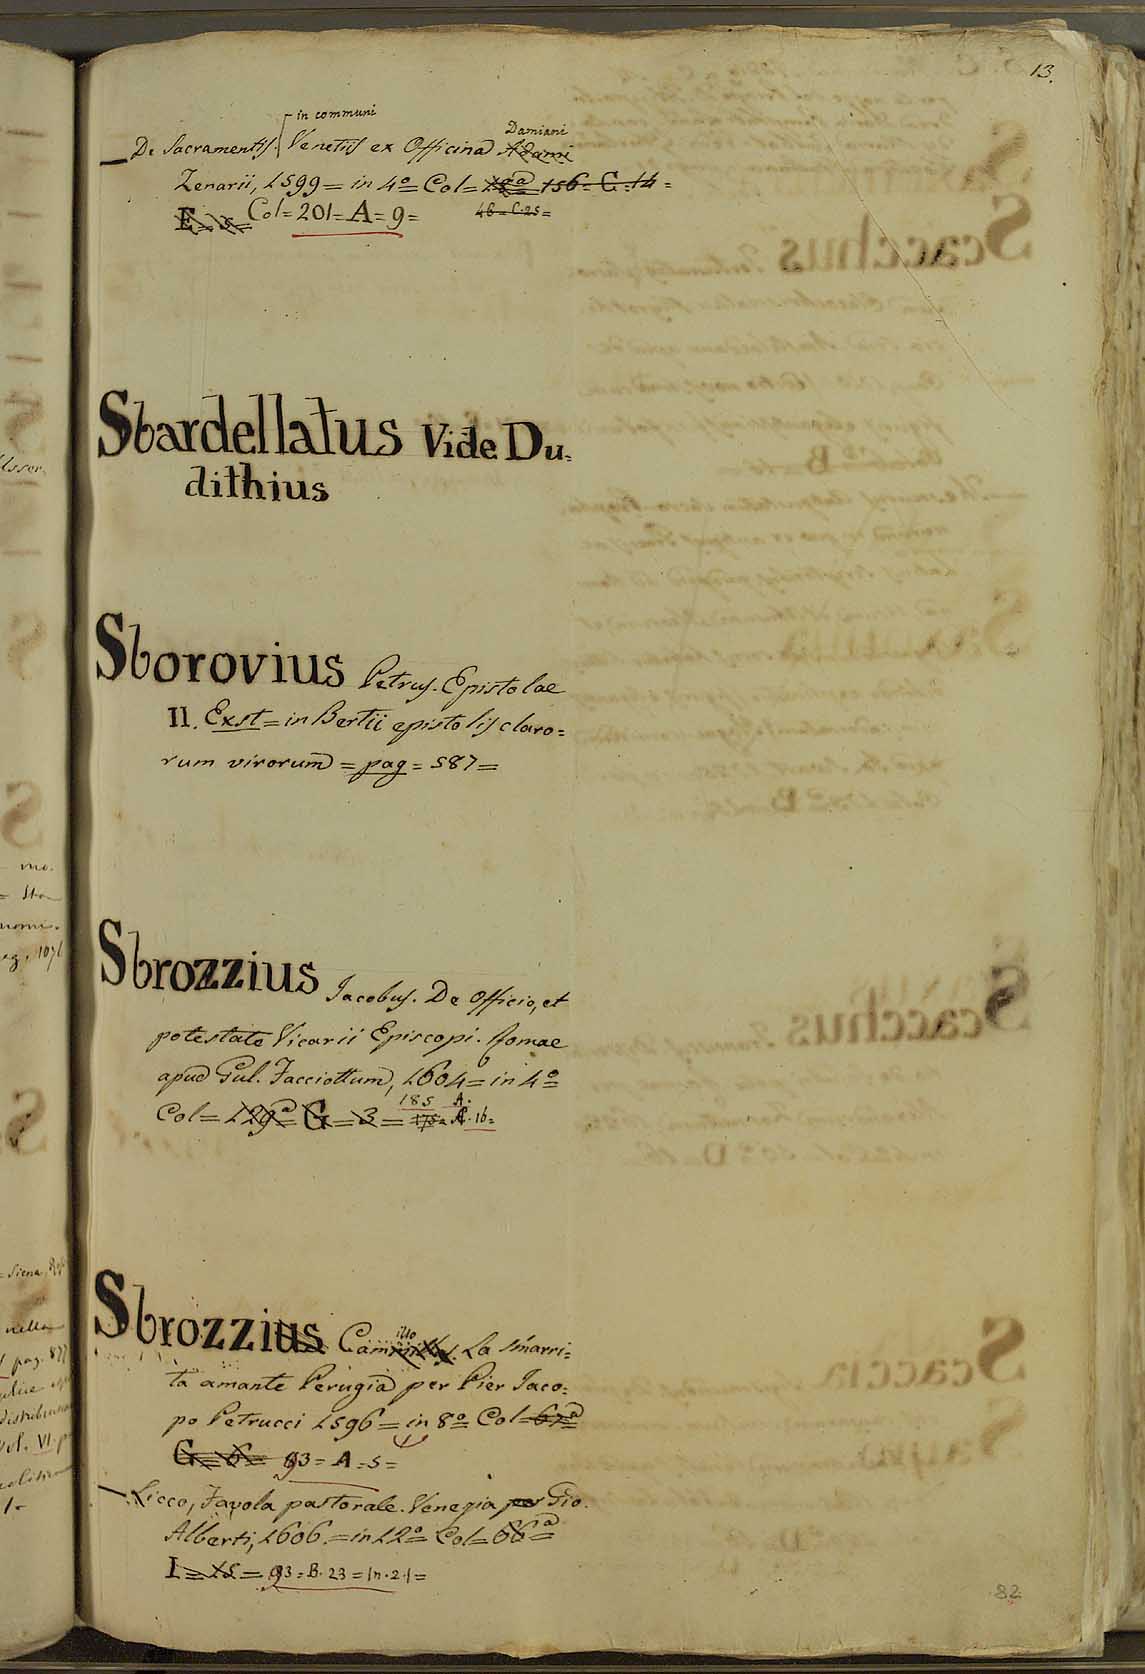 13.
in communi
Damiani
De Sacramentis. Venetiis ex Officina Adami
Zenarii, 1599 = in 4º = Col = 156 = C = 14 =
E = 5 = Col = 201 = A = 9 = 46 = C. 25 =
Sbardellatus Vide Du=
dithius
Sborovius Petrus. Epistolae
II. Exst = in Bertii epistolis claro=
rum virorum = pag = 587 =
Sbrozzius Jacobus. De Officio, et
potestate Vicarii Episcopi. Romae
apud Gul. Facciottum, 1604 = in 4º =
185 A.
Col = 129ª = G = 3 = 175 = 16 =
Sbrozzius Camillo. La smarri=
ta amante Perugia per Pier Jaco=
po Petrucci 1596 = in 8º = Col = 67ª
G = 6 = 93 = A = 5 =
Licco, Favola pastorale. Venezia per Gio.
Alberti, 1606. = in 12º = Col = 66ª =
I = 15 = 93 = B. 23 = In. 21 =
82